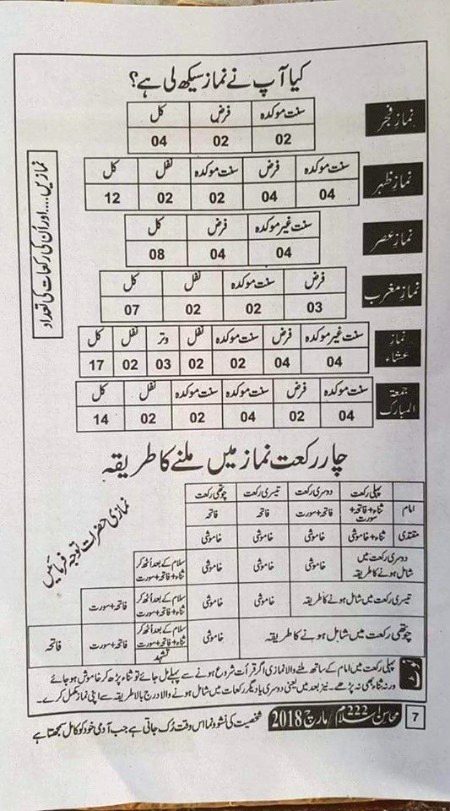 کیا آپ نے نماز سیکھ لی ہے؟
نمازیں.... اور اُن کی رکعات کی تعداد
نمازِ فجر
سنت موکدہ فرض کل
02 02 04
نمازِ ظہر
سنت موکدہ فرض سنت موکدہ نفل کل
04 04 02 02 12
نمازِ عصر
سنت غیر موکدہ فرض کل
04 04 08
نمازِ مغرب
فرض سنت موکدہ نفل کل
03 02 02 07
نماز عشاء
سنت غیر موکدہ فرض سنت موکدہ نفل وتر نفل کل
04 04 02 02 03 02 17
جمعۃ المبارک
سنت موکدہ فرض سنت موکدہ سنت موکدہ نفل کل
04 02 04 02 02 14
چار رکعت نماز میں ملنے کا طریقہ
نمازی حضرات توجہ فرمائیں
پہلی رکعت دوسری رکعت تیسری رکعت چوتھی رکعت
امام ثناء+فاتحہ+سورت فاتحہ+سورت فاتحہ فاتحہ
مقتدی ثناء+خاموشی خاموشی خاموشی خاموشی
دوسری رکعت میں شامل ہونے کا طریقہ خاموشی خاموشی خاموشی سلام کے بعد اُٹھ کر ثناء+فاتحہ+سورت
تیسری رکعت میں شامل ہونے کا طریقہ خاموشی خاموشی سلام کے بعد اُٹھ کر ثناء+فاتحہ+سورت فاتحہ+سورت
چوتھی رکعت میں شامل ہونے کا طریقہ خاموشی سلام کے بعد اُٹھ کر ثناء+فاتحہ+سورت تشہد فاتحہ+سورت فاتحہ
پہلی رکعت میں امام کے ساتھ ملنے والا نمازی اگر قرأت شروع ہونے سے پہلے مل جائے تو ثناء پڑھ کر خاموش ہو جائے
ورنہ ثناء بھی نہ پڑھے۔ نیز بعد میں یعنی دوسری یا دیگر رکعات میں ملنے والا درج بالا طریقہ سے اپنی نماز مکمل کرے۔
7 محاسن اسلام 222 / مارچ 2018 شخصیت کی نشوونما اس وقت رُک جاتی ہے جب آدمی خود کو کامل سمجھتا ہے